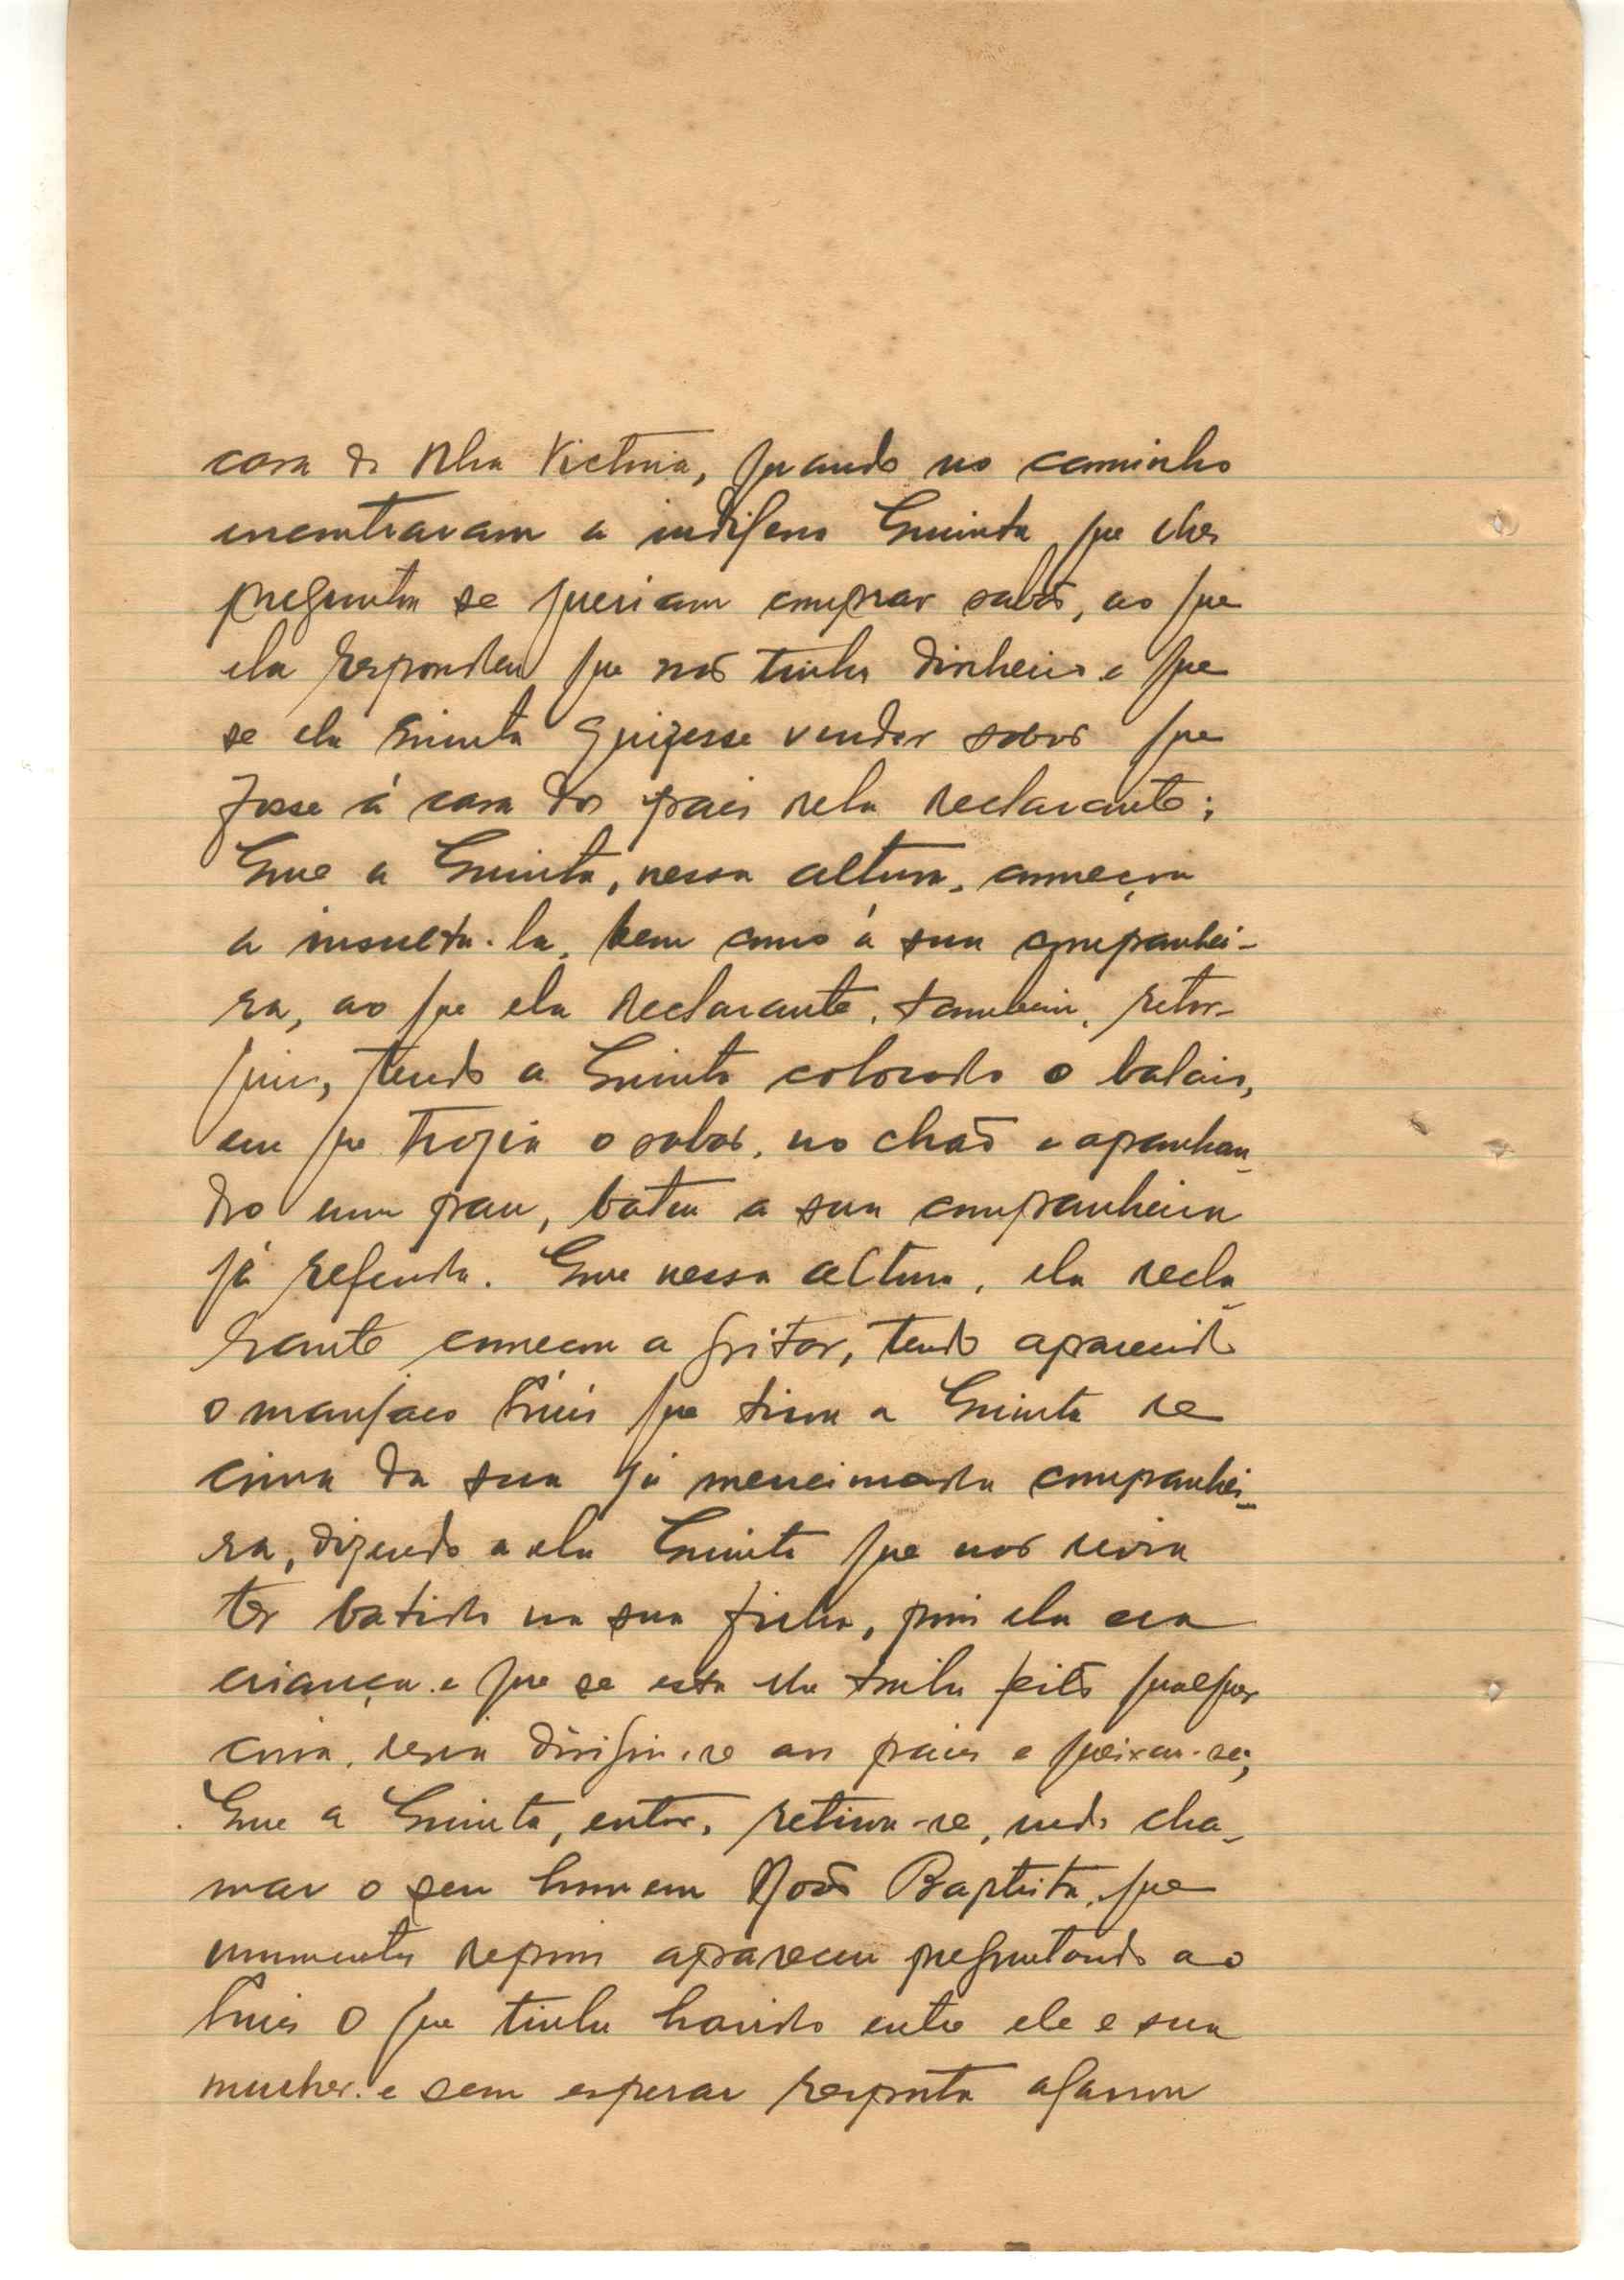 casa de Nha Victoria, quando no caminho
encontraram a indigena Quinta que lhes
preguntou se queriam comprar sabão, ao que
ela respondeu que não tinha dinheiro e que
se ela Quinta quizesse vender sabão que
fosse á casa dos pais dela declarante;
Que a Quinta, nessa altura, começou
a insulta-la, bem como á sua companhei-
ra, ao que ela declarante, tambem, retor-
quiu, tendo a Quinta colocado o balaio,
em que trazia o sabão, no chão e apanhan-
do um pau, bateu a sua companheira
já referida. Que nessa altura, ela decla-
rante começou a gritar, tendo aparecido
o manjaco Luís que tirou a Quinta de
cima da sua já mencionada companhei-
ra, dizendo a ela Quinta que não devia
ter batido na sua filha, pois ela era
criança e que se esta lhe tinha feito qualquer
coisa, devia dirigir-se aos pais e queixar-se;
Que a Quinta, então, retirou-se, indo cha-
mar o seu homem João Baptista, que
momentos depois apareceu preguntando ao
Luis o que tinha havido entre ele e sua
mulher e sem esperar resposta agarrou